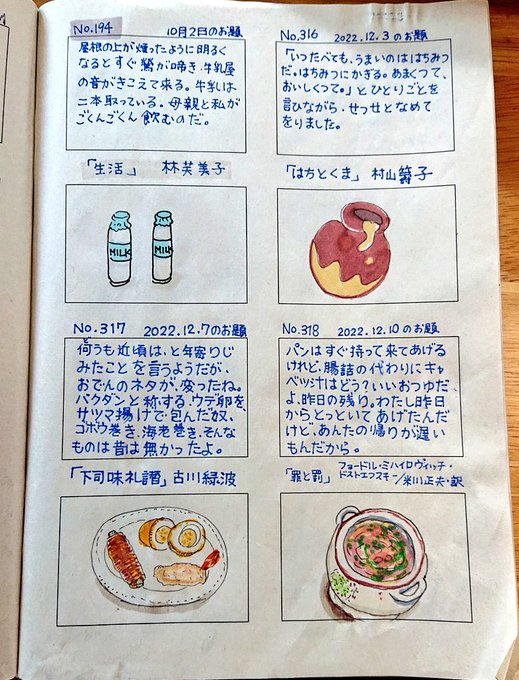 No.194 10月2日のお題
屋根の上が煙ったように明るく
なるとすぐ鶯が啼き、牛乳屋
の音がきこえて来る。牛乳は
二本取っている。母親と私が
ごくんごくん飲むのだ。
「生活」 林芙美子
MILK
MILK
No.316 2022.12.3のお題
「いつたべても、うまいのははちみつ
だ。はちみつにかぎる。あまくつて、
おいしくつて。」とひとりごとを
言ひながら、せっせとなめて
をりました。
「はちとくま」 村山籌子
No.317 2022.12.7のお題
何うも近頃は、と年寄りじ
みたことを言うようだが、
おでんのネタが、変ったね。
バクダンと称する、ウデ卵を、
サツマ揚げで包んだ奴、
ゴボウ巻き、海老巻き、そんな
ものは昔は無かったよ。
「下司味礼讃」 古川緑波
No.318 2022.12.10のお題
パンはすぐ持って来てあげる
けれど、腸詰の代わりにキャ
ベツ汁はどう?いいおつゆだ
よ、昨日の残り。わたし昨日
からとっといてあげたんだ
けど、あんたの帰りが遅い
もんだから。
「罪と罰」 フョードル・ミハイロヴィッチ・
ドストエフスキー/米川正夫・訳